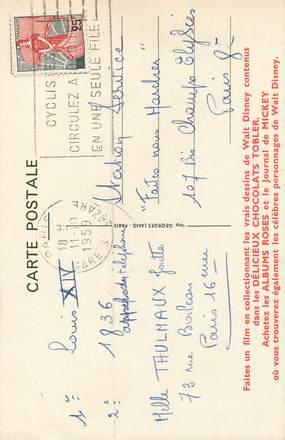 CARTE POSTALE
1°: Louis XIV
2°: 1836
appels de téléphone
Melle THULHAUX
73 rue Boileau
Paris 16 eme
Station Service
"Faites nous Marcher"
107 Bis Champs Elysées
Paris 8e
25F
CYCLIS
CIRCULEZ A
EN UNE SEULE FILE
PARIS
18 H
11-10
1959
GARE ST LAZARE
Imp. GEORGES LANG - PARIS
Faites un film en collectionnant les vrais dessins de Walt Disney contenus
dans les DÉLICIEUX CHOCOLATS TOBLER.
Achetez les ALBUMS ROSES et le journal de MICKEY
où vous trouverez également les célèbres personnages de Walt Disney.